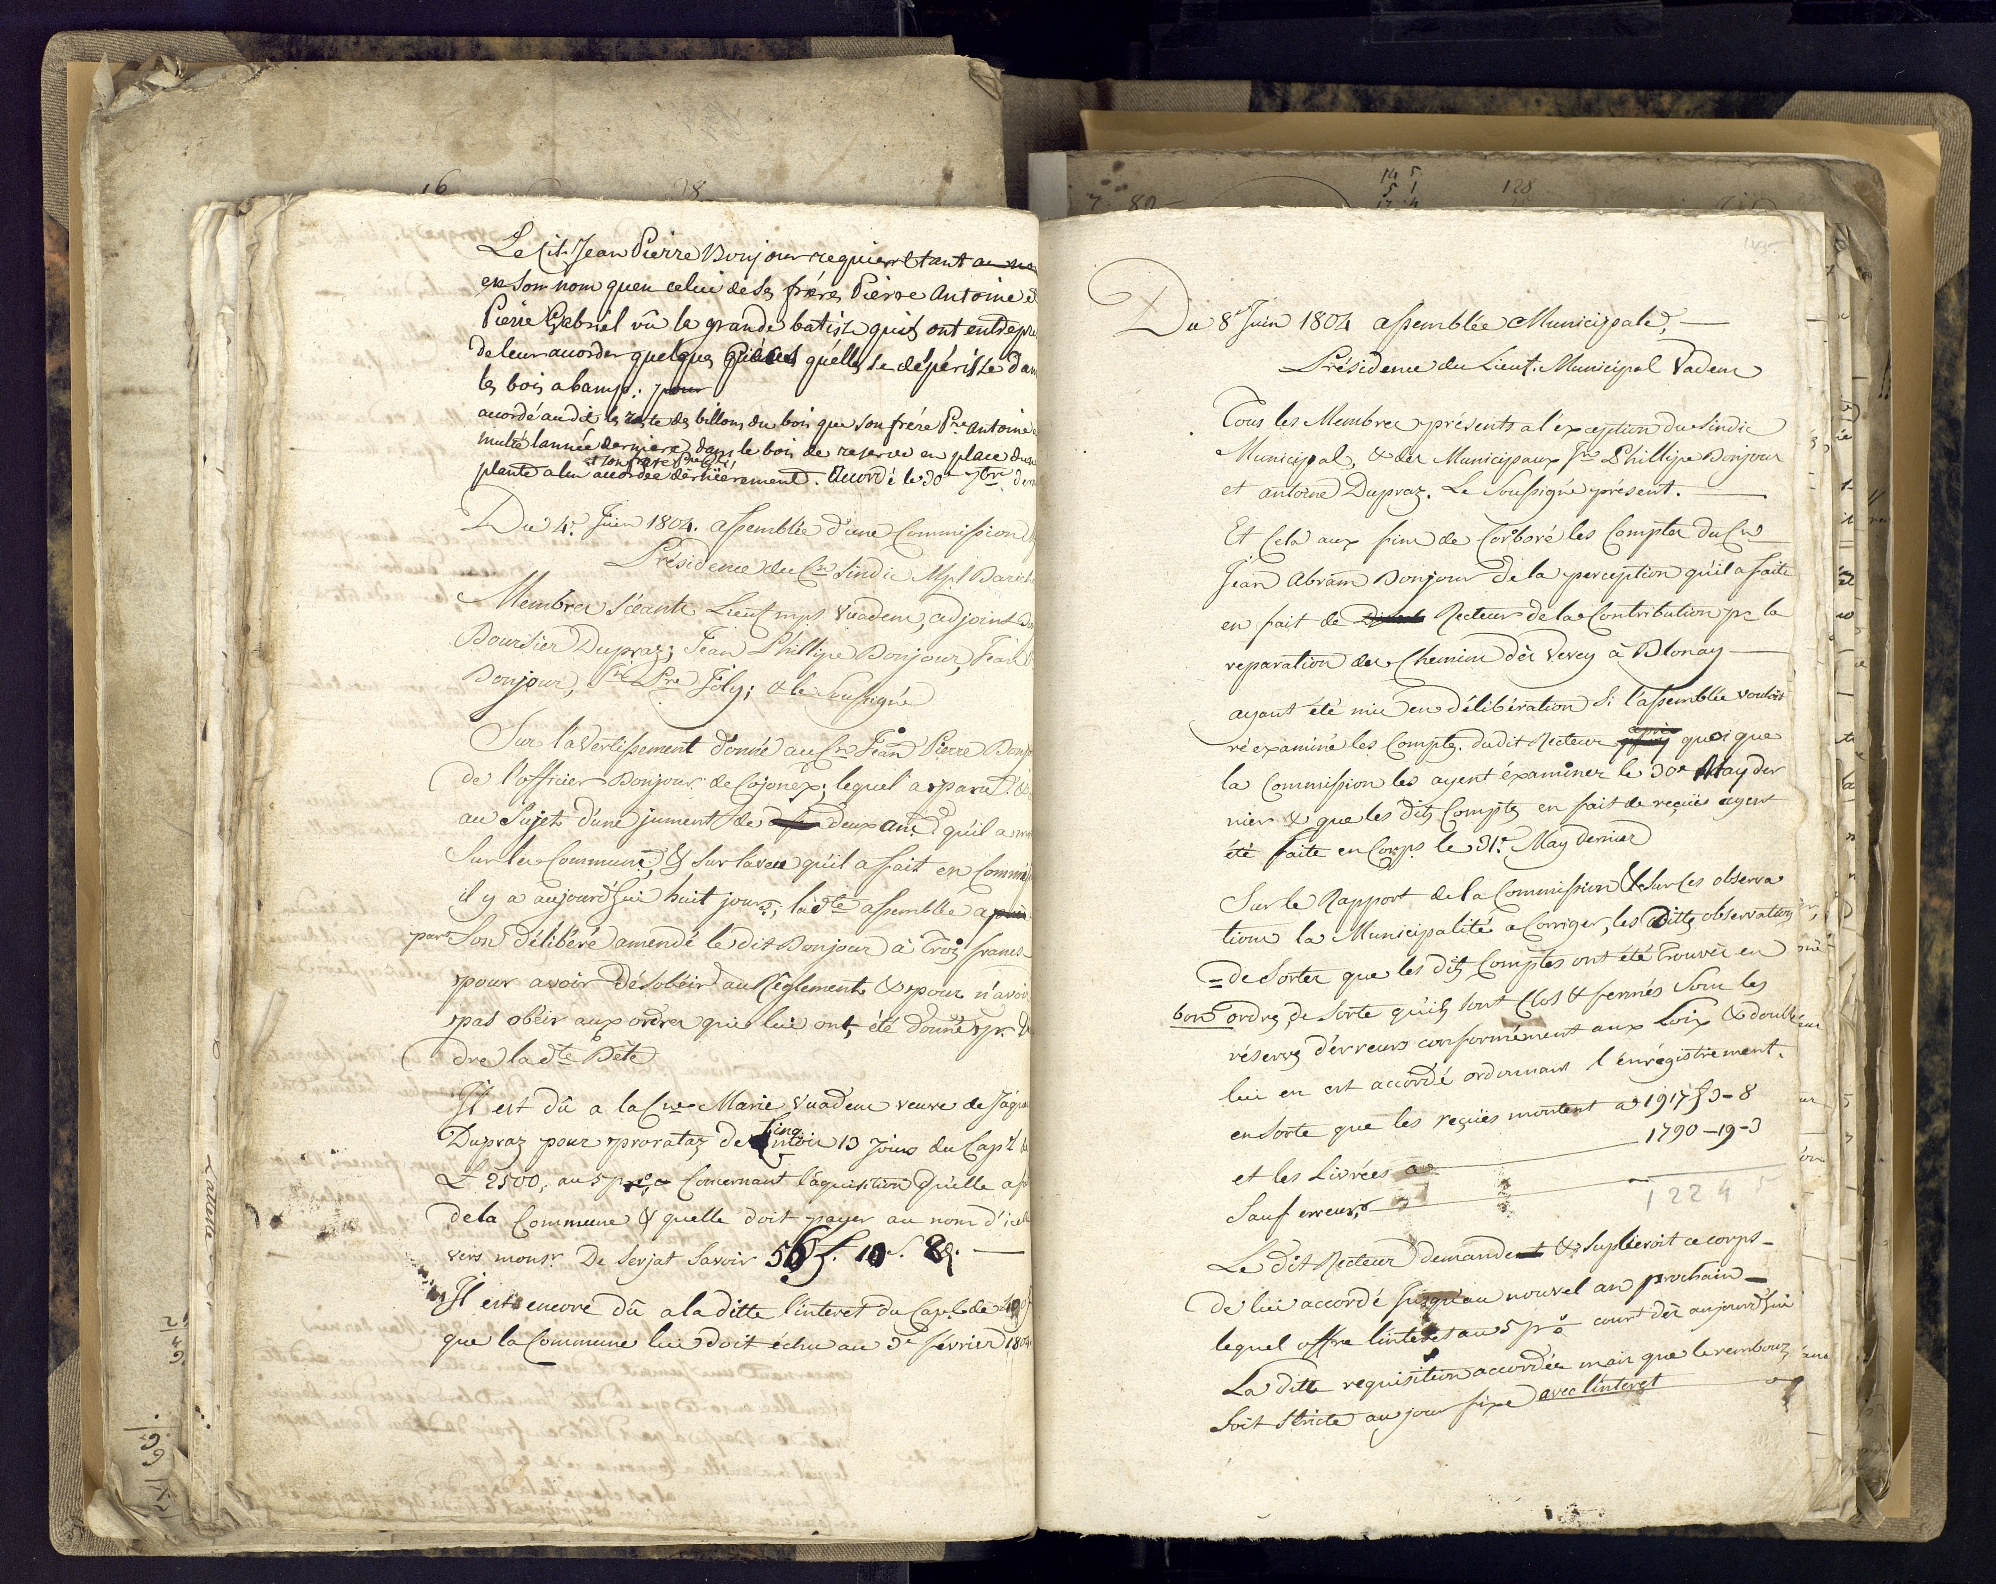 Le Cit. Jean Pierre Bonjour requiert tant au
en son nom quen celui de ses fréres Pierre Antoine et
Pierre Gabriel vû la grande batise quils ont entrepri
de leur accorder quelques qu'elles se dépérisse dan
les bois abamp. pour
acordé audit le reste des billons du bois que son frére Pre Antoine a
multé lannée derniere dans le bois de reserve en place dune
et son frere Pre Gel
plante a lui accordée dernièrement. Accordé le 30e 7bre. dern
Du 4e. Juin 1804. assemblée d'une Commission
Présidence du Cn Sindic Mpl
Membres Séants Lieut. mpl Vuadens, adjoint
Boursier Dupraz; Jean Phillipe Bonjour, Jean
Bonjour, Pre Joly; & le Soussigné
Sur l'avertissement donné au Cn Jean Pierre Bonj
de l'officier Bonjour de Cojonex; lequel a paru
au Sujet d'une jument de deux ans qu'il a
Sur les Communs, & sur laveu qu'il a fait en Commis
il y a aujourd'hui huit jours, la dte assemblée a
par Son délibéré amendé le dit Bonjour à Trois francs
pour avoir désobéir au Rêglement & pour n'avoir
pas obéir aux ordres qui lui ont été donné pr.
dre la dte Bête
Il est dû a la Cne Marie Vuadens veuve de Jaque
Dupraz pour proratas de Cinq mois 13 Jours du Capl
L 2500, au 5 p% Concernant l'aquisition qu'elle a
de la Commune & quelle doit payer au nom d'icelle
vers monsr. De Serjat Savoir 56 f. 10 s. 8 d.
Il est encore dû a la ditte l'interet du Cap. de
que la Commune lui doit échu au 3e février 1804
Du 8e Juin 1804 assemblée Municipale,
Présidence du Lieut. Municipal Vadens
Tous les Membres présents a l'exception du Sindic
Municipal, & des Municipaux Jn Phillipe Bonjour
et antoine Dupraz. Le Soussigné présent.
Et Cela aux fins de Corboré les Comptes du Cn
Jean Abram Bonjour de la perception qu'il a faite
en fait de Recteur de la Contribution pr la
reparation des Chemins dès Vevey a Blonay
ayant été mis en délibération Si l'assemblée vouloit
réexaminé les Comptes dudit Recteur après quoique
la Commission les ayent éxaminer le 30e May der
nier & que les dits Comptes en fait de reçuës ayent
été faite en Corps le 31e May dernier
Sur le Rapport de la Commission & Sur les observa
tions la Municipalité a Corriger, les dittes observations
= de Sortes que les dits Comptes ont été trouvés en
bons ordres, de sorte qu'ils sont Clos & fermés Sous les
réserves d'erreurs conformément aux Loix & double
lui en est accordé ordonnant l'enrégistrement.
ensorte que les reçuës montent a 1917 f 3-8
et les Livrées a 1790-19-3
Sauf erreurs
1 2 2 4 5
Le dit Recteur demande & suplieroit ce corps
de lui accordé jusqu'au nouvel an prochain
lequel offre l'intéret au 5 p% court dès aujourd'hui
La ditte requisition accordée mais que le rembours
soit Stricte au jour fixe avec l'interet